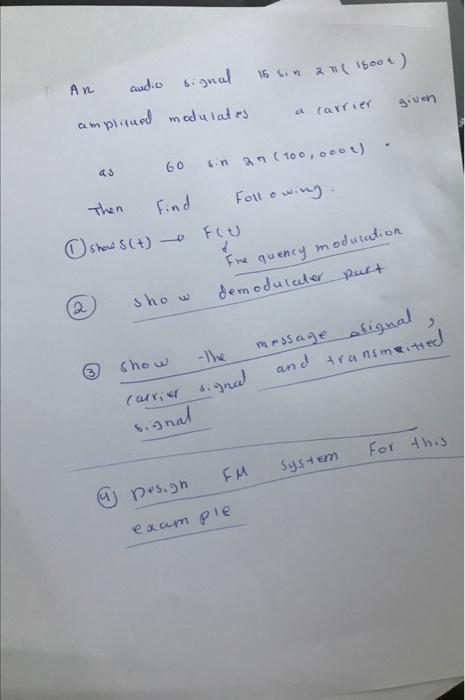 An audio signal 15 sin 2π(1500t)
amplitued modulates a carrier given
as 60 sin 2π(100,000t) .
Then Find Following.
① show S(t) → F(t)
Frequency modulation
② show demodulater part
③ show the message signal,
carrier signal and transmeitted
signal
④ Design FM system For this
example